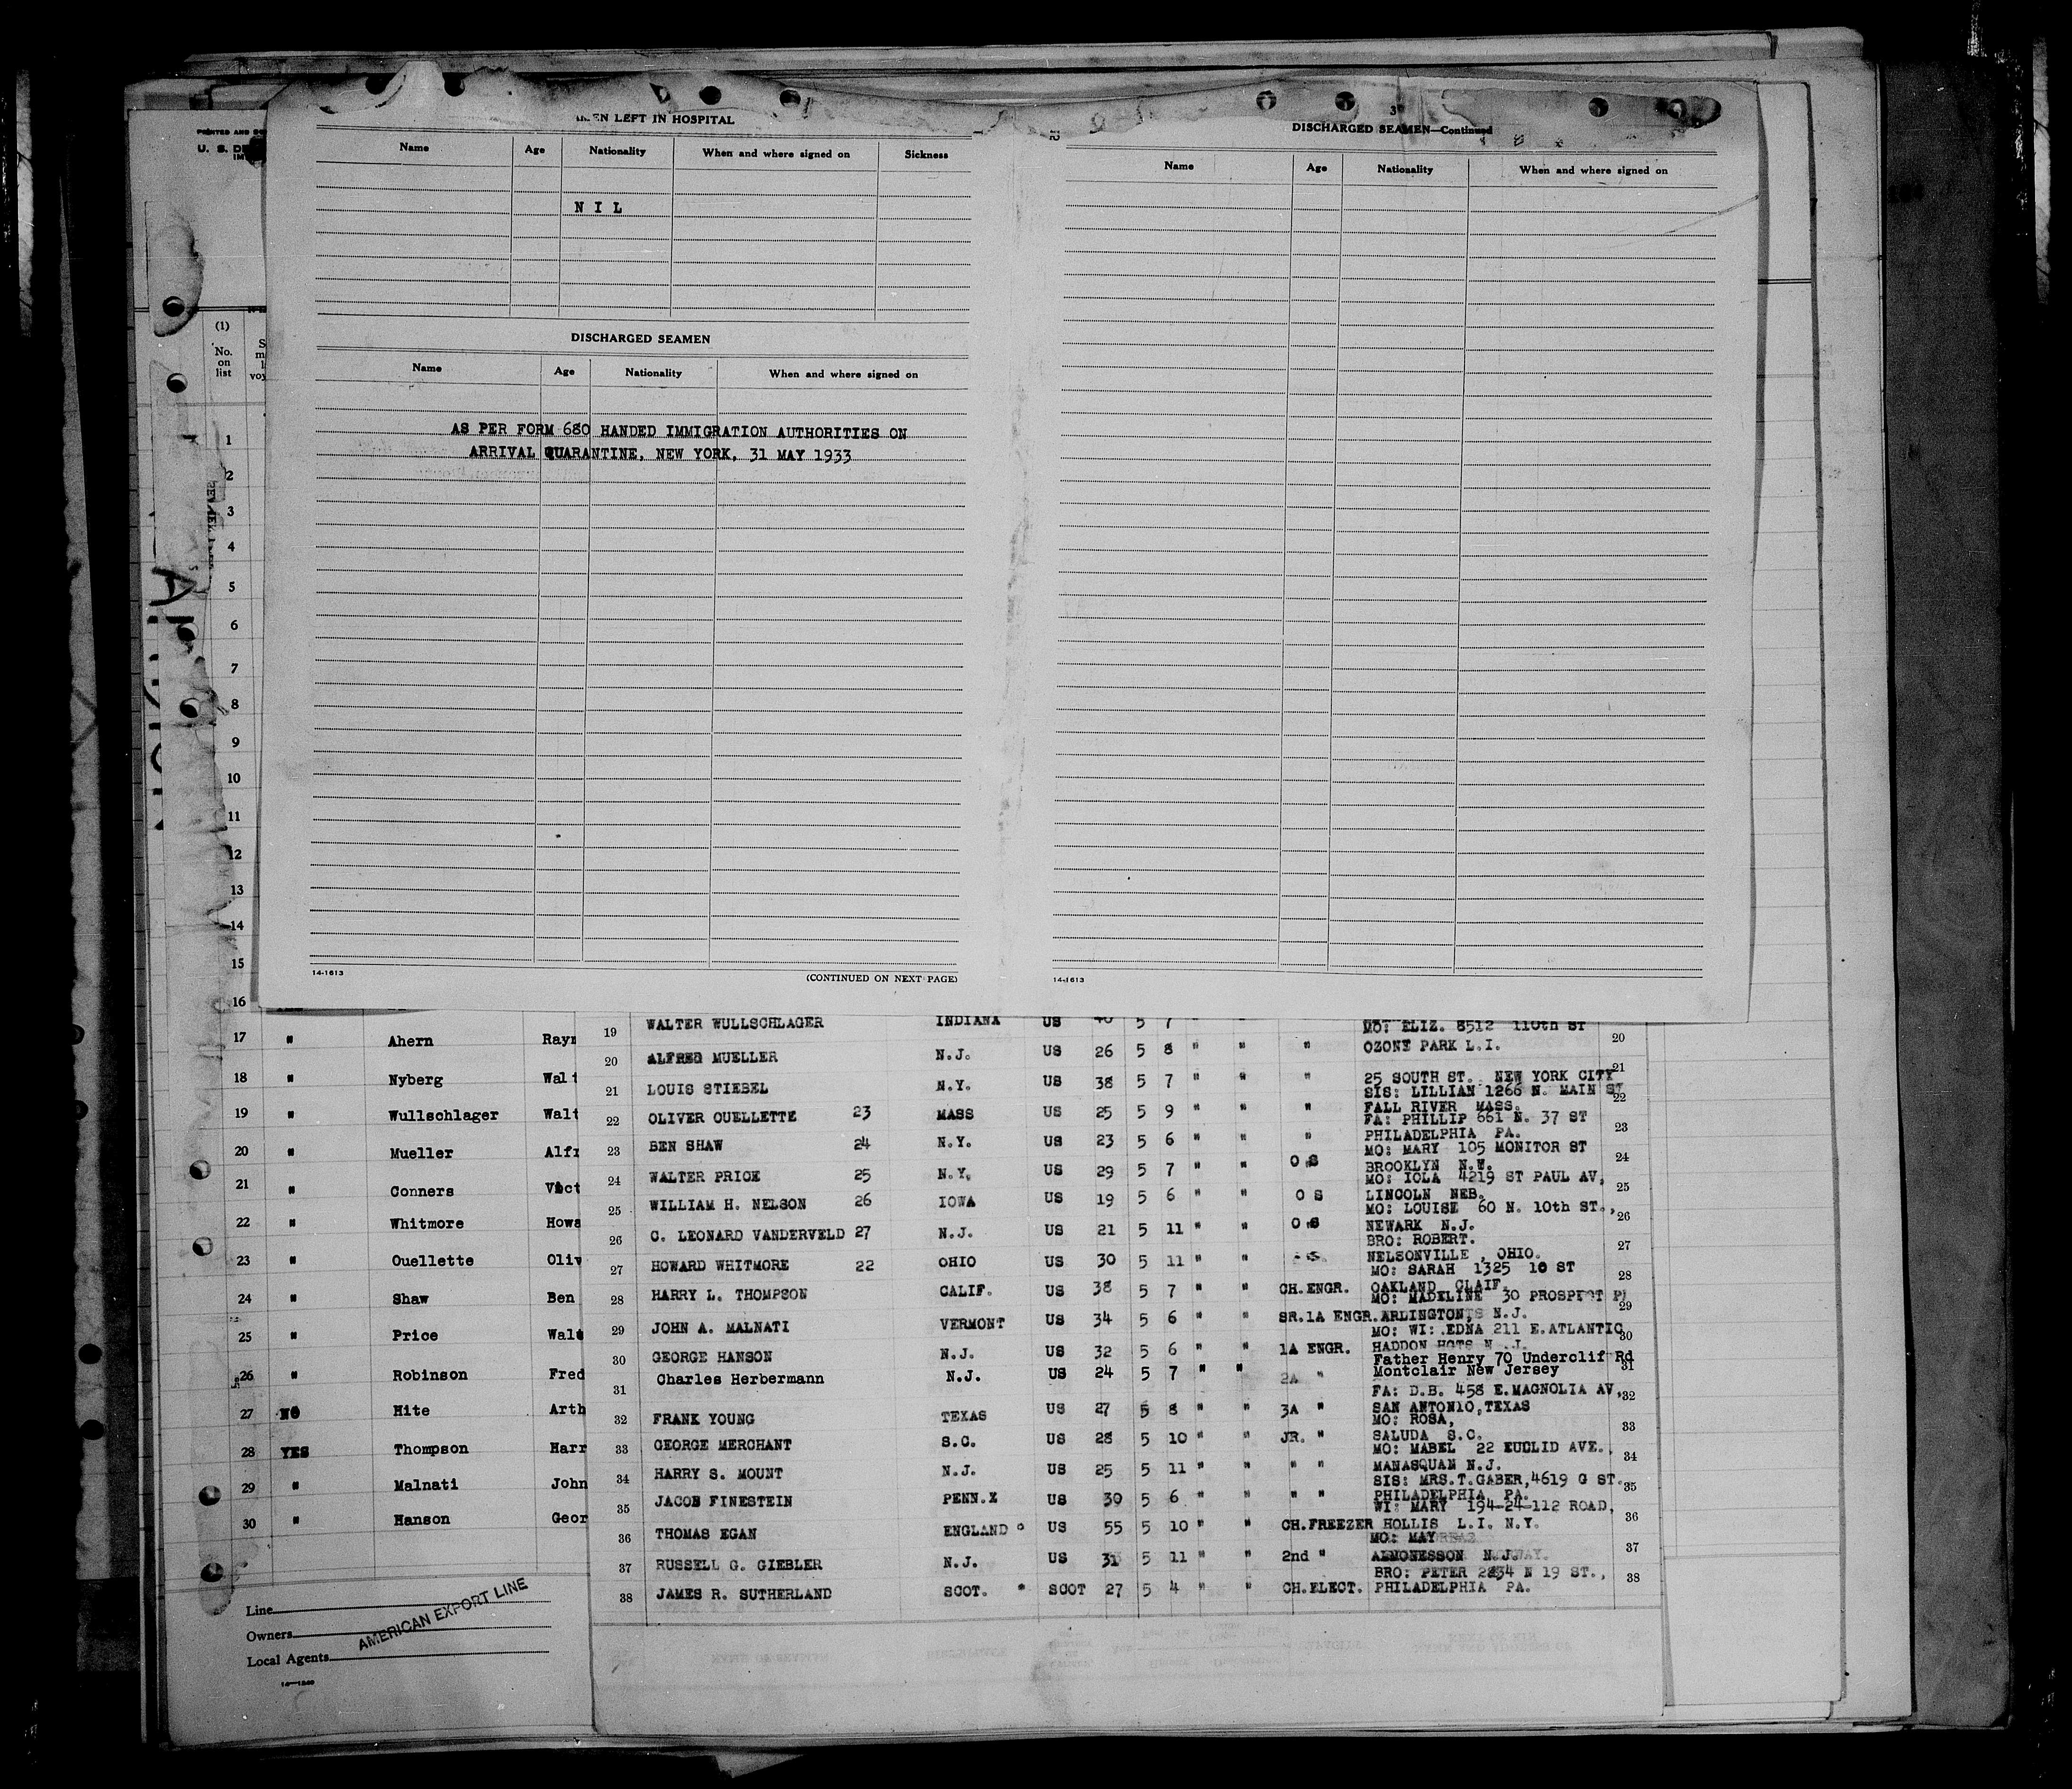 PRINTED AND
U. S. DE
IM
(1)
No.
on
list
LEFT IN HOSPITAL
Name Age Nationality When and where signed on Sickness
N I L
DISCHARGED SEAMEN
Name Age Nationality When and where signed on
AS PER FORM 680 HANDED IMMIGRATION AUTHORITIES ON
ARRIVAL QUARANTINE, NEW YORK, 31 MAY 1933
14-1613 (CONTINUED ON NEXT PAGE)
3
DISCHARGED SEAMEN—Continued
Name Age Nationality When and where signed on
14-1613
1
2
3
4
5
6
7
8
9
10
11
12
13
14
15
16
17 " Ahern Ray
18 " Nyberg Walt
19 " Wullschlager Walt
20 " Mueller Alfr
21 " Conners Vict
22 " Whitmore Howa
23 " Ouellette Oliv
24 " Shaw Ben
25 " Price Walt
26 " Robinson Fred
27 NO Hite Arth
28 YES Thompson Harr
29 " Malnati John
30 " Hanson Geor
Line
Owners
Local Agents
AMERICAN EXPORT LINE
19 WALTER WULLSCHLAGER INDIANA US 40 5 7 " " MO: ELIZ. 8512 110th ST
20 ALFRED MUELLER N.J. US 26 5 8 " " " OZONE PARK L.I. 20
21 LOUIS STIEBEL N.Y. US 38 5 7 " " " 25 SOUTH ST. NEW YORK CITY 21
SIS: LILLIAN 1266 N. MAIN ST
22 OLIVER OUELLETTE 23 MASS US 25 5 9 " " " FALL RIVER MASS. 22
FA: PHILLIP 661 N. 37 ST
23 BEN SHAW 24 N.Y. US 23 5 6 " " " PHILADELPHIA PA. 23
MO: MARY 105 MONITOR ST
24 WALTER PRICE 25 N.Y. US 29 5 7 " " O S BROOKLYN N.Y. 24
MO: IOLA 4219 ST PAUL AV,
25 WILLIAM H. NELSON 26 IOWA US 19 5 6 " " O S LINCOLN NEB. 25
MO: LOUISE 60 N. 10th ST.,
26 C. LEONARD VANDERVELD 27 N.J. US 21 5 11 " " O S NEWARK N.J. 26
BRO: ROBERT.
27 HOWARD WHITMORE 22 OHIO US 30 5 11 " " NELSONVILLE , OHIO. 27
MO: SARAH 1325 10 ST
28 HARRY L. THOMPSON CALIF. US 38 5 7 " " CH.ENGR. OAKLAND CLAIF. 28
MO: MADELINE 30 PROSPECT Pl
29 JOHN A. MALNATI VERMONT US 34 5 6 " " SR.1A ENGR. ARLINGTON, N.J. 29
MO: WI: EDNA 211 E.ATLANTIC
30 GEORGE HANSON N.J. US 32 5 6 " " 1A ENGR. HADDON HGTS N.J. 30
Father Henry 70 Underclif Rd
31 Charles Herbermann N.J. US 24 5 7 " " 2A " Montclair New Jersey 31
FA: D.B. 458 E.MAGNOLIA AV,
32 FRANK YOUNG TEXAS US 27 5 8 " " 3A " SAN ANTONIO,TEXAS 32
MO: ROSA,
33 GEORGE MERCHANT S.C. US 28 5 10 " " JR. " SALUDA S.C. 33
MO: MABEL 22 EUCLID AVE.,
34 HARRY S. MOUNT N.J. US 25 5 11 " " " " MANASQUAN N.J. 34
SIS: MRS.T.GABER,4619 G ST.
35 JACOB FINESTEIN PENN.X US 30 5 6 " " " " PHILADELPHIA PA. 35
WI: MARY 194-24-112 ROAD,
36 THOMAS EGAN ENGLAND US 55 5 10 " " CH.FREEZER HOLLIS L.I. N.Y. 36
MO: MAY
37 RUSSELL G. GIEBLER N.J. US 31 5 11 " " 2nd " ALMONESSON N.J. 37
BRO: PETER 2234 N 19 ST.,
38 JAMES R. SUTHERLAND SCOT. " SCOT 27 5 4 " " CH.ELECT. PHILADELPHIA PA. 38